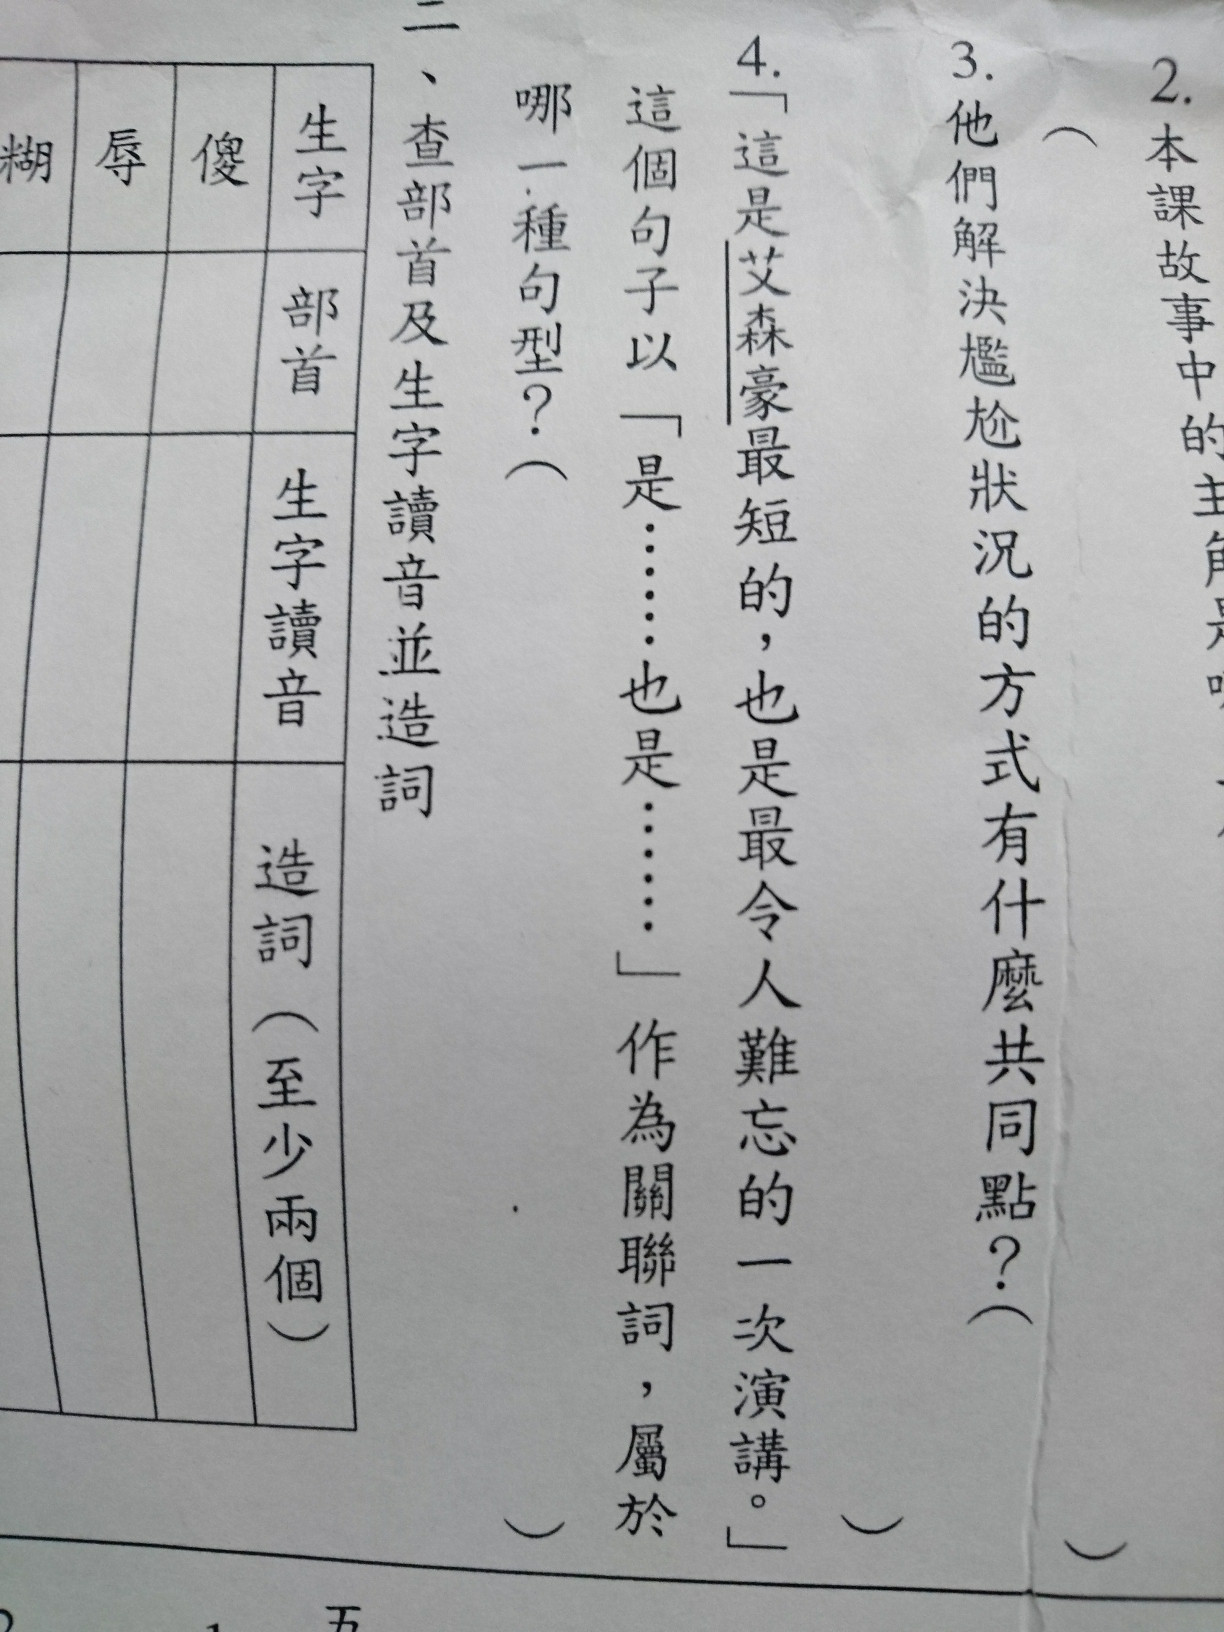 2.本課故事中的主角是
（　　）
3.他們解決尷尬狀況的方式有什麼共同點？（
）
4.「這是艾森豪最短的，也是最令人難忘的一次演講。」
這個句子以「是……也是……」作為關聯詞，屬於
哪一種句型？（　　）
二、查部首及生字讀音並造詞
生字 部首 生字讀音 造詞（至少兩個）
傻
辱
糊
五